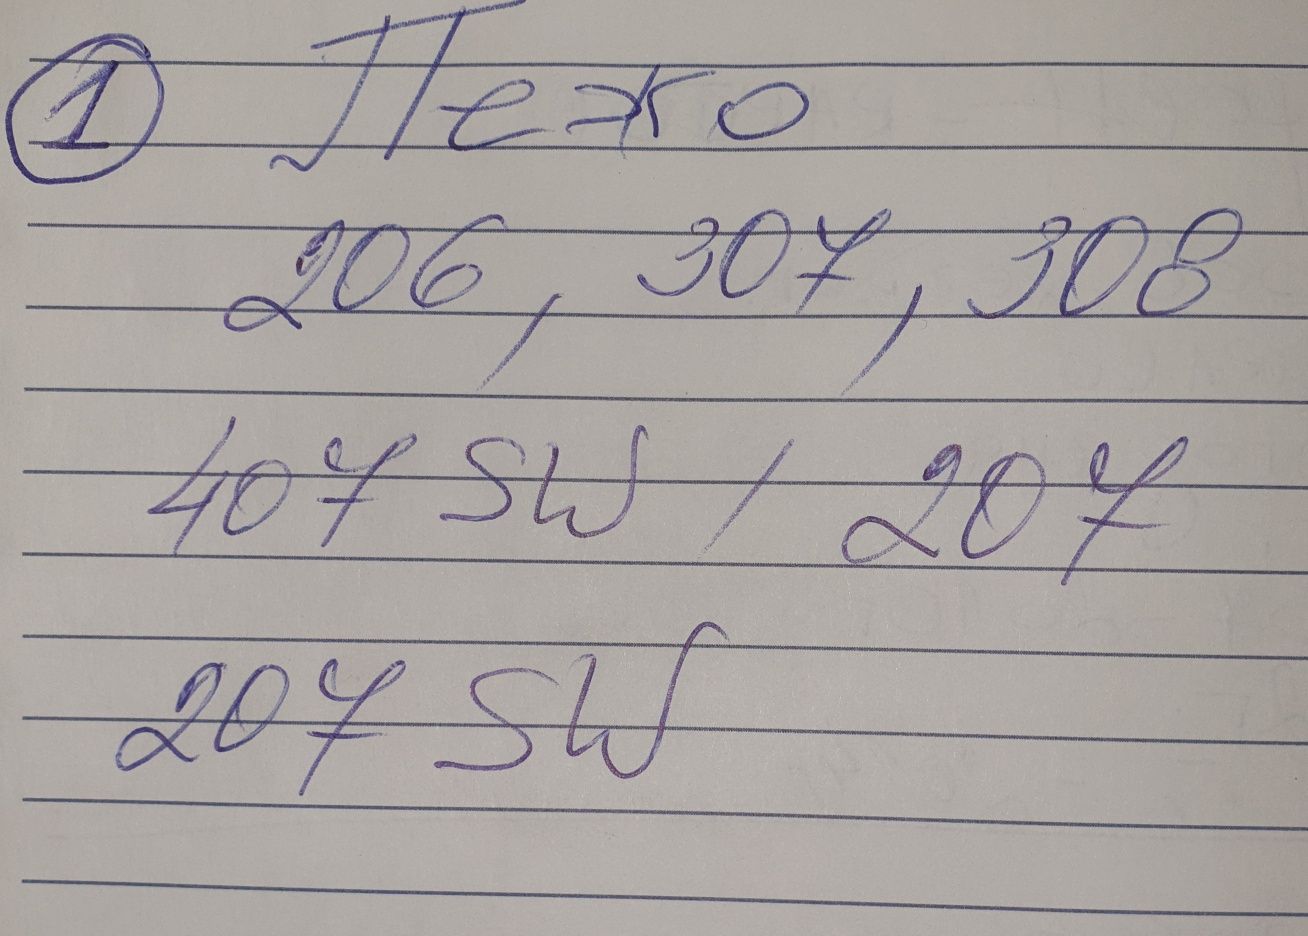 1 Пежо
206, 307, 308
407 SW / 207
207 SW